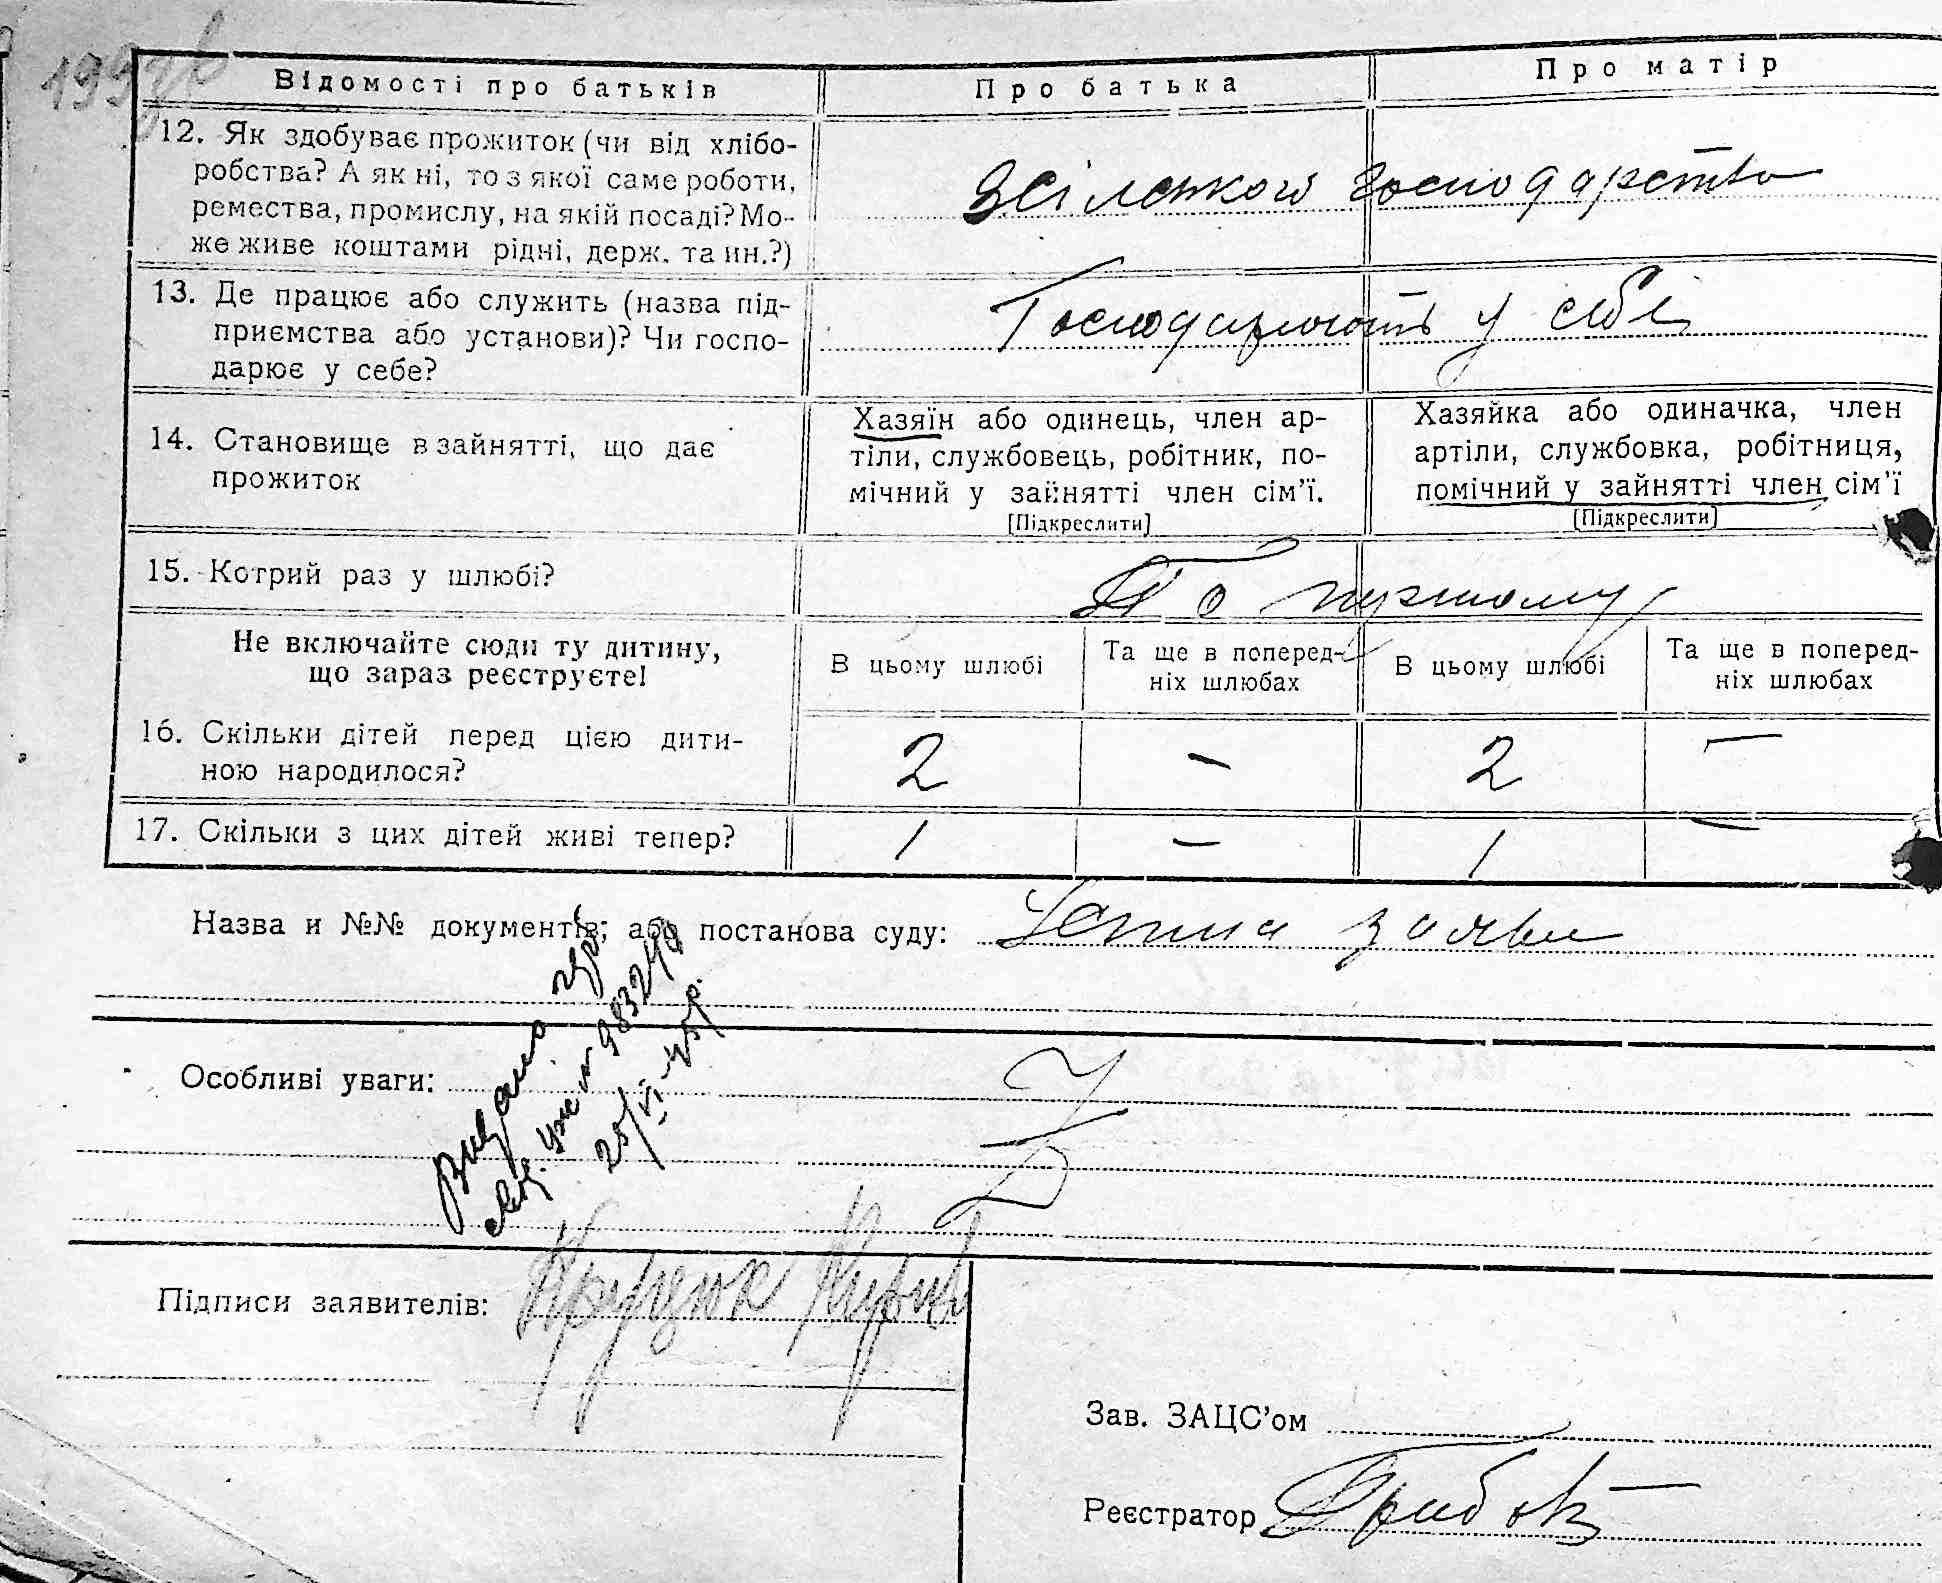 Відомості про батьків
Про батька
Про матір
12. Як здобуває прожиток (чи від хлібо-
робства? А як ні, то з якої саме роботи,
ремества, промислу, на якій посаді? Мо-
же живе коштами рідні, держ. та ин.?)
Зсілського господарства
13. Де працює або служить (назва під-
приємства або установи)? Чи госпо-
дарює у себе?
Господарюють у себе
14. Становище в зайнятті, що дає
прожиток
Хазяїн або одинець, член ар-
тіли, службовець, робітник, по-
мічний у зайнятті член сім'ї.
[Підкреслити]
Хазяйка або одиначка, член
артіли, службовка, робітниця,
помічний у зайнятті член сім'ї
[Підкреслити]
15. Котрий раз у шлюбі?
По першому
Не включайте сюди ту дитину,
що зараз реєструєте!
В цьому шлюбі
Та ще в поперед-
ніх шлюбах
В цьому шлюбі
Та ще в поперед-
ніх шлюбах
16. Скільки дітей перед цією дити-
ною народилося?
2 — 2 —
17. Скільки з цих дітей живі тепер?
1 — 1 —
Назва и №№ документів; або постанова суду: Устна заява
Особливі уваги:
видано
25/VI-45р.
Підписи заявителів:
Зав. ЗАЦС'ом
Реєстратор